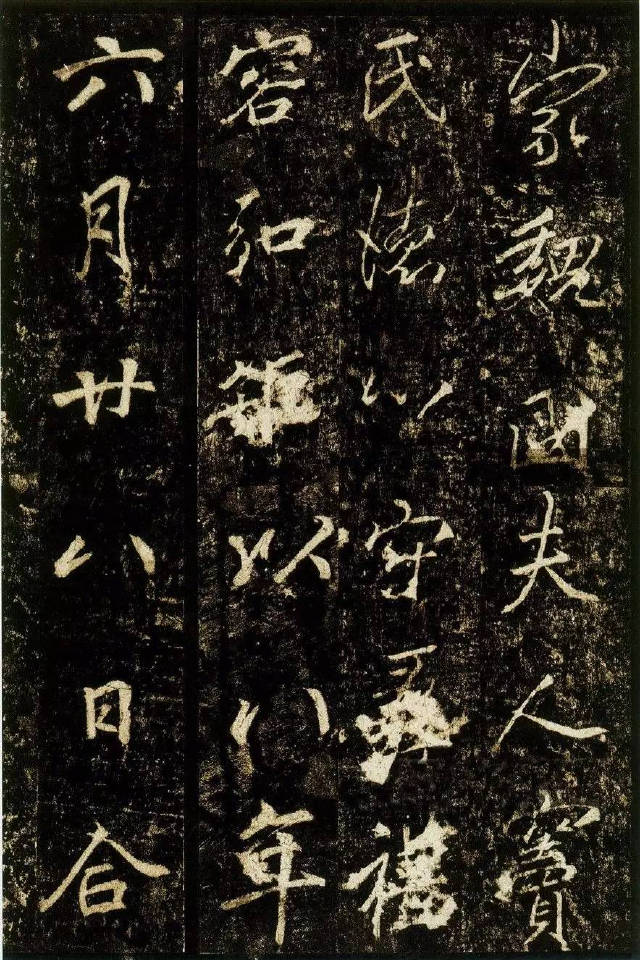 家魏國夫人竇
氏德心守禮
容和以八年
六月廿八日合